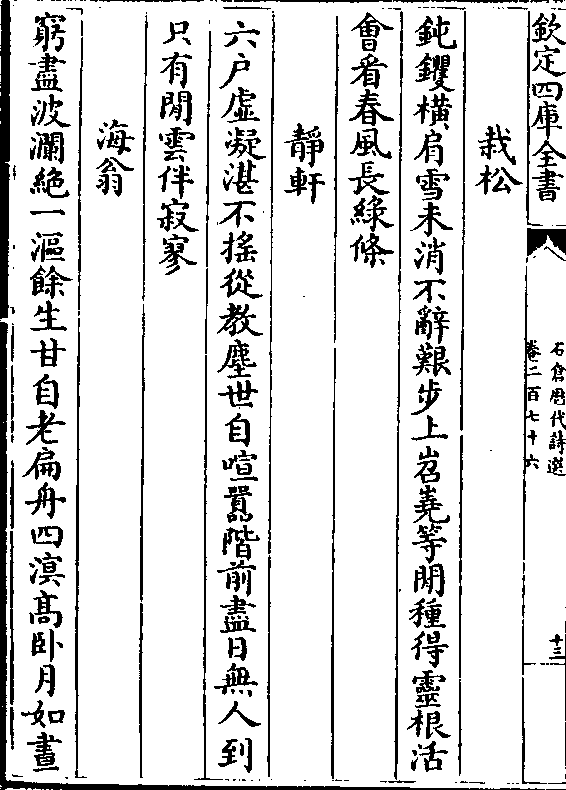 欽定四庫全書
石倉歷代詩選
卷二百七十六
十三
栽松
鈍钁橫肩雪未消不辭艱步上岧嶤等閒種得靈根活
會看春風長綠條
靜軒
六户虛凝湛不搖從教塵世自喧囂階前盡日無人到
只有閒雲伴寂寥
海翁
窮盡波瀾絶一漚餘生甘自老扁舟四溟髙卧月如晝